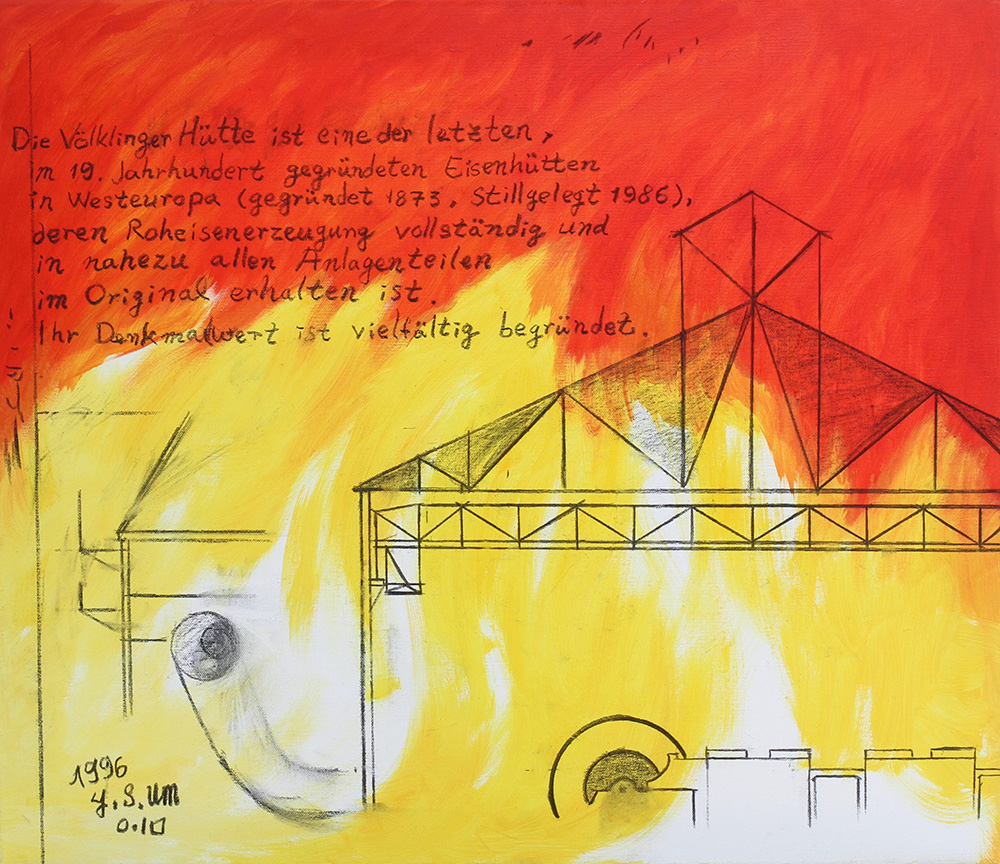 Die Völklinger Hütte ist eine der letzten,
im 19. Jahrhundert gegründeten Eisenhütten
in Westeuropa (gegründet 1873, Stillgelegt 1986),
deren Roheisenerzeugung vollständig und
in nahezu allen Anlagenteilen
im Original erhalten ist.
Ihr Denkmalwert ist vielfältig begründet.
1996
y.S.UM